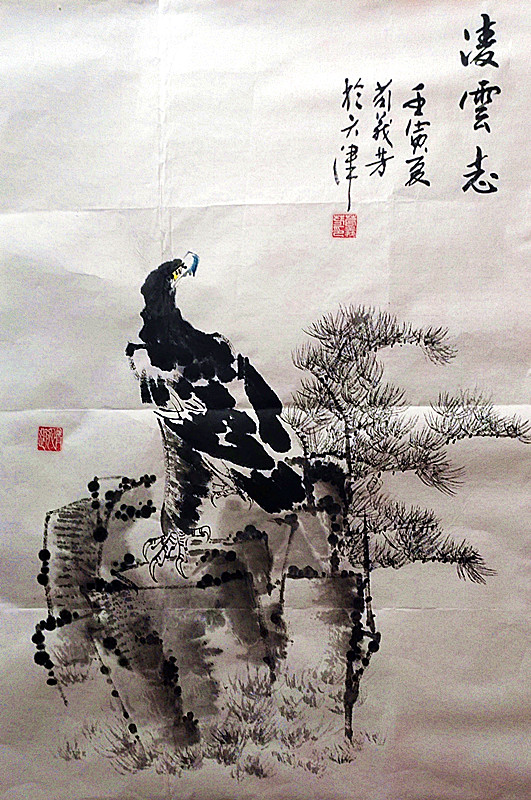 凌雲志
壬寅夏
苟義芳
於天津